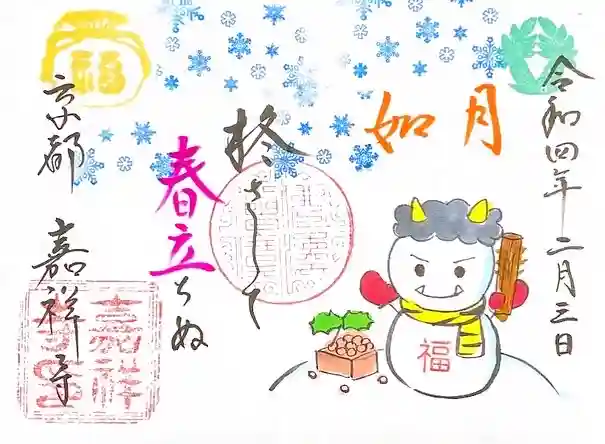 令和四年二月三日
如月
柊さして
春立ちぬ
京都 嘉祥寺
福
福